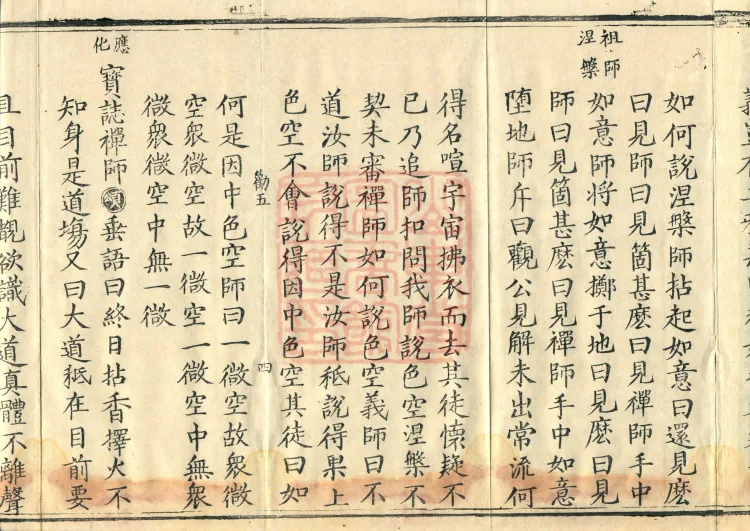 祖師
涅槃
如何說涅槃師拈起如意曰還見麽
曰見師曰見箇甚麽曰見禪師手中
如意師將如意擲于地曰見麽曰見
師曰見箇甚麽曰見禪師手中如意
墮地師斥曰觀公見解未出常流何
得名喧宇宙拂衣而去其徒懷疑不
已乃追師扣問我師說色空涅槃不
契未審禪師如何說色空義師曰不
道汝師說得不是汝師秖說得果上
色空不會說得因中色空其徒曰如
勸五
四
何是因中色空師曰一微空故衆微
空衆微空故一微空一微空中無衆
微衆微空中無一微
應化
寶誌禪師 垂語曰終日拈香擇火不
知身是道場又曰大道秖在目前要
且目前難覩欲識大道真體不離聲